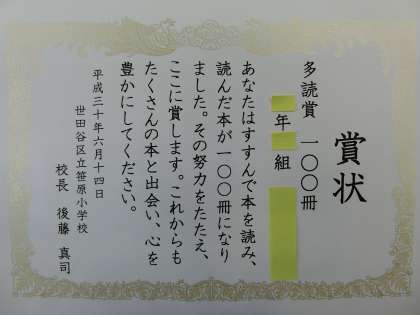 賞状
多読賞 一〇〇冊
年 組
あなたはすすんで本を読み、
読んだ本が一〇〇冊になり
ました。その努力をたたえ、
ここに賞します。これからも
たくさんの本と出会い、心を
豊かにしてください。
平成三十年六月十四日
世田谷区立笹原小学校
校長 後藤 真司